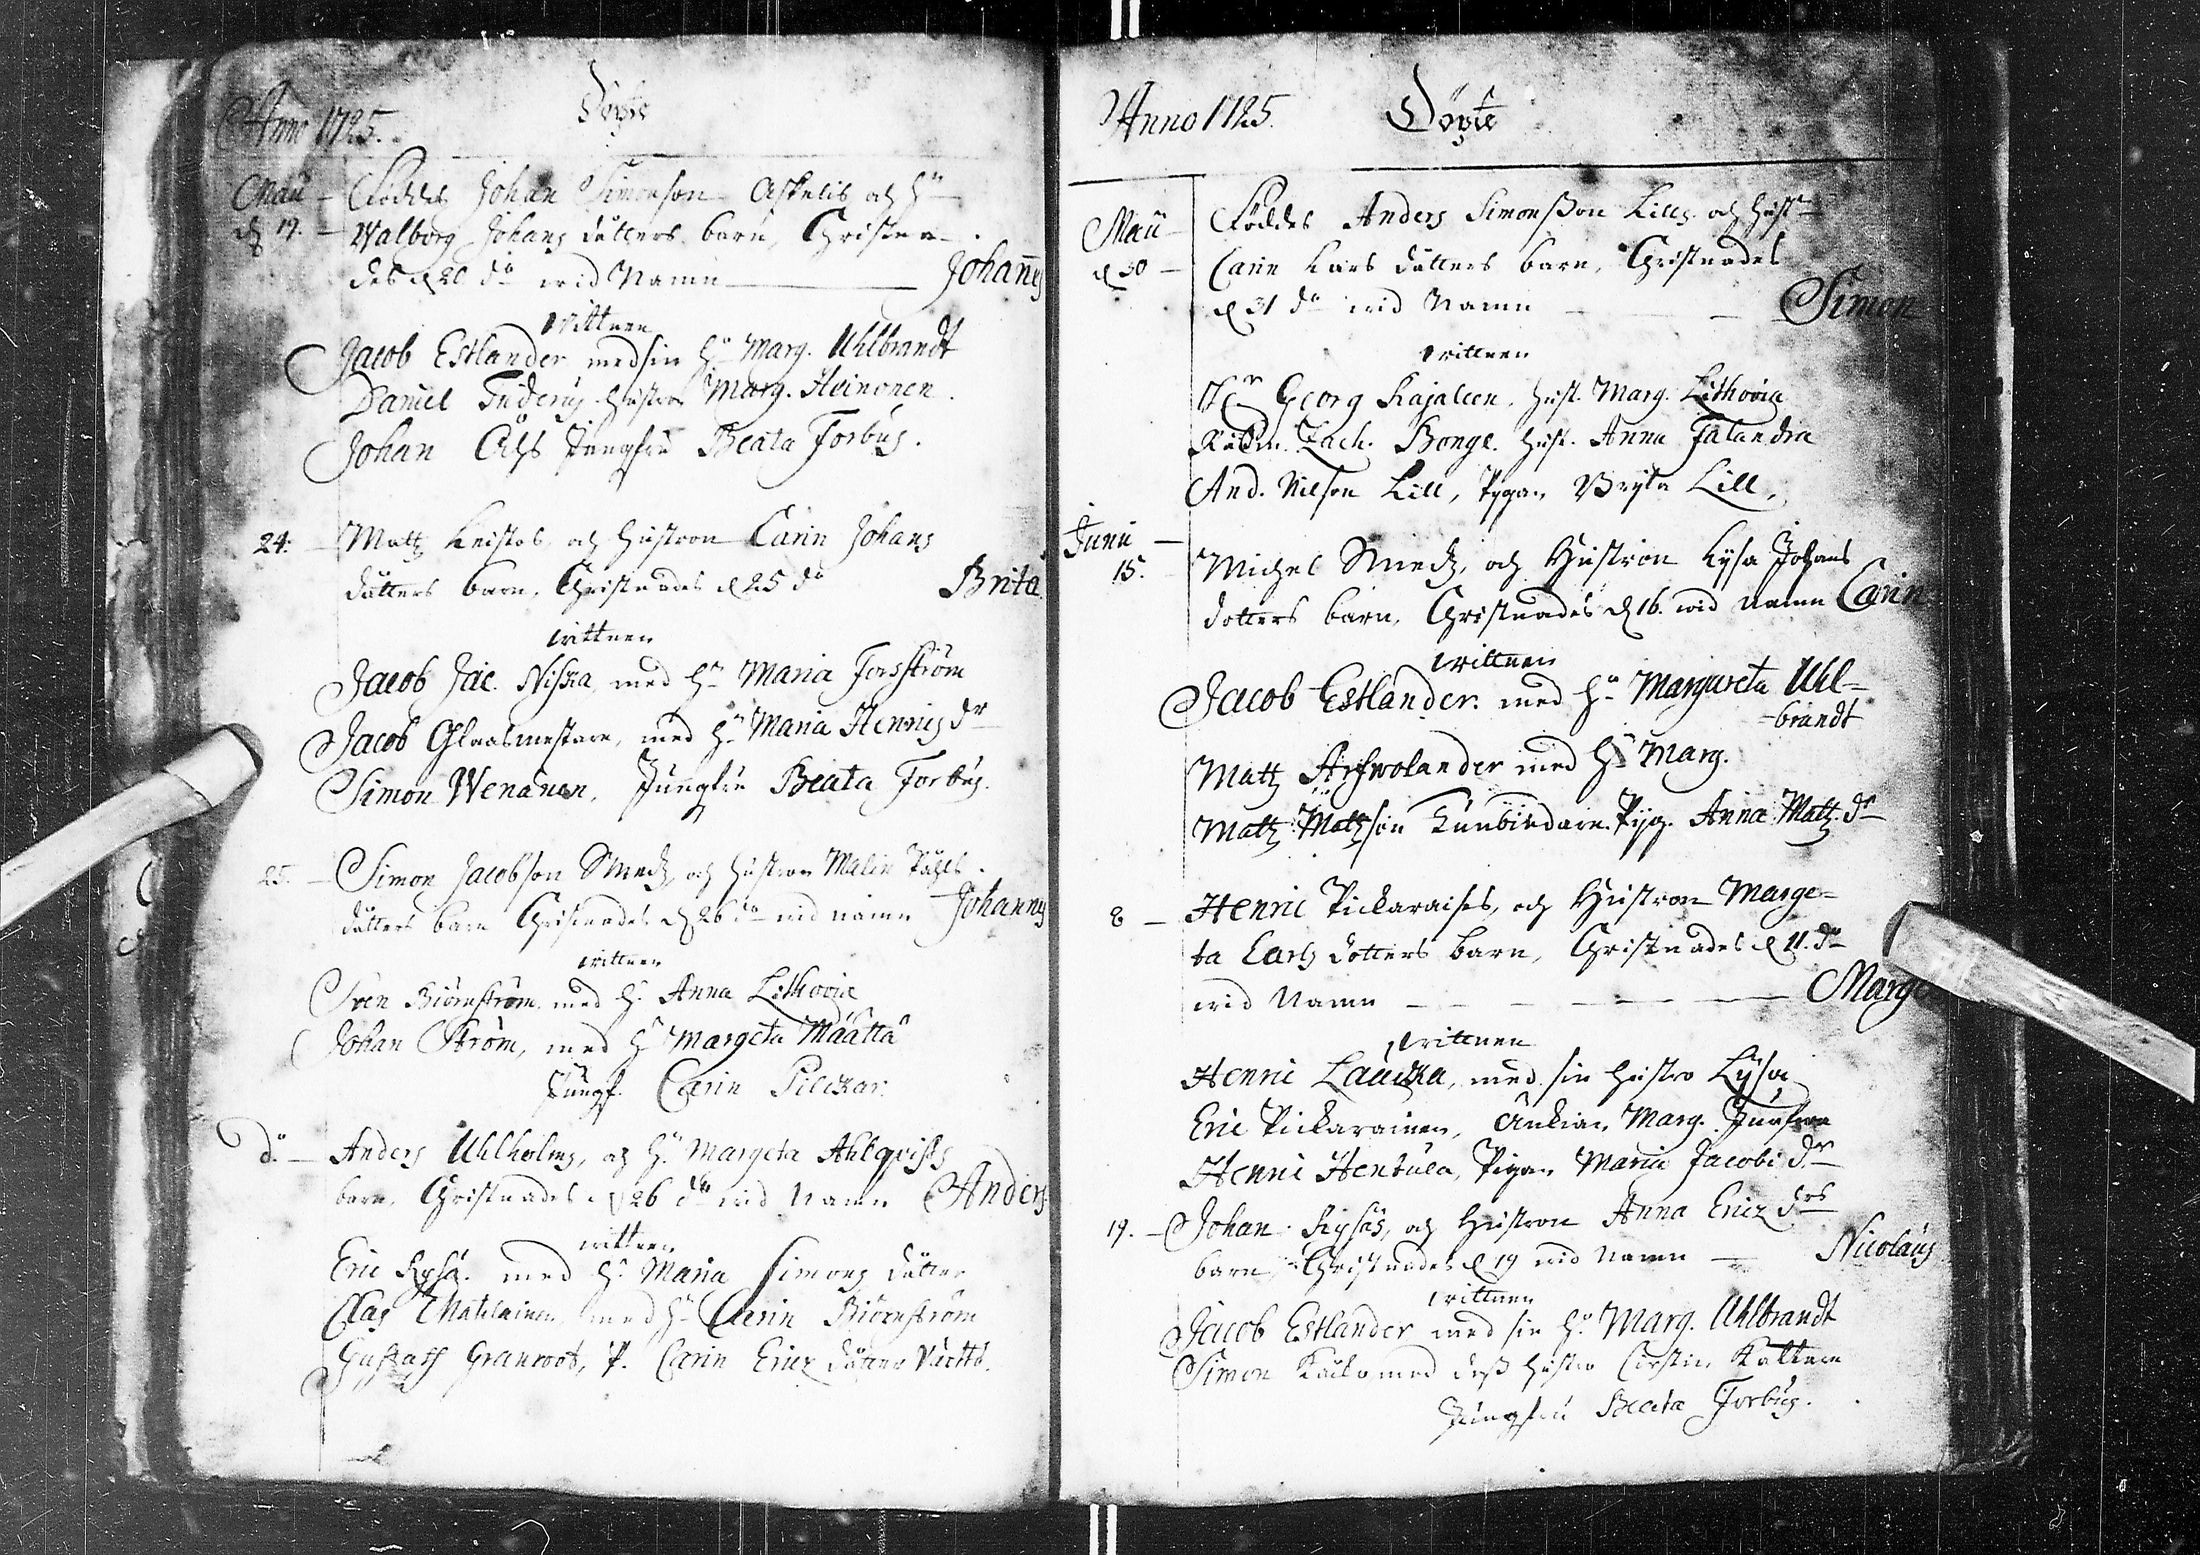 Anno 1725. Döpte
Maii Föddes Johan Simonson Askelis och hu
d 19. Walborg Johans dätters barn, Christna-
des d 20 do wid Namn Johannes
wittnen
Jacob Estlander med sin hu Marg. Uhlbrandt
Daniel Tuderus hustro Marg. Heinonen.
Johan Jungfru Beata Forbus.
24. Matz och hustron Carin Johans
dätters barn, Christnades d 25 do Brita
wittnen
Jacob Jac. Niska, med hu Maria Forsström
Jacob Glaasmestare, med hu Maria Henrics dr
Simon Wenänen, Jungfru Beata Forbus.
25. Simon Jacobson Smedz och hustron Malin Påhls
dätters barn Christnades d 26 do wid namn Johannes
wittnen
Sven Biörnström med h. Anna Lithovia
Johan Ström, med hu Margeta Määttä
Jungf. Carin Pilckar.
do Anders Uhlholms, och h. Margeta Ahlqvists
barn, Christnades d 26 do wid Namn Anders
wittnen
Eric Kyhä. med h. Maria Simons dätter
Clas Matilainen med hu Carin Biörnström
Gustaff Granroot, P. Carin Ericz dätter
Anno 1725. Döpte
Maii Föddes Anders Simonßon Lills och hust
d 30 Carin Lars dätters barn, Christnades
d 31 do wid Namn Simon
wittnen
Hr Georg Kajaleen, hust. Marg. Lithovia
Rådm. Zach. Bonge. hust. Anna Falandra
And. Nilson Lill, Pigan Bryta Lill,
Junii
15. Michel Smedz, och Hustron Lysa Johans
dotters barn, Christnades d 16. wid namn Carin
wittnen
Jacob Estlander. med hu Margareta Uhl-
-brandt
Matz Arfwolander med hu Marg.
Matz Matzson Tunbindare. Pig. Anna Matz. dr
8 Henric Pickaraises, och Hustron Marge-
ta Earls dotters barn, Christnades d 11. do
wid Namn Marge
wittnen
Henric Lauckka, med sin hustro Lysa
Eric Pickarainen, Änkian Marg.
Henric Hentula, Pigan Maria Jacobi dr
19. Johan Kyhäs, och Hustron Anna Ericz drs
barn, Christnades d 19 wid Namn Nicolaus
wittnen
Jacob Estlander med sin hu Marg. Uhlbrandt
Simon med deß hustro Cirstin
Jungfru Beata Forbus.